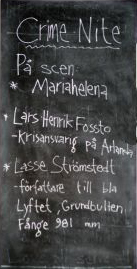 Crime Nite
På scen
* Mariahelena
* Lars Henrik Fossto
- Krisansvarig på Arlanda
* Lasse Strömstedt
- författare till bla
Lyftet, Grundbulten
Fånge 981 mm